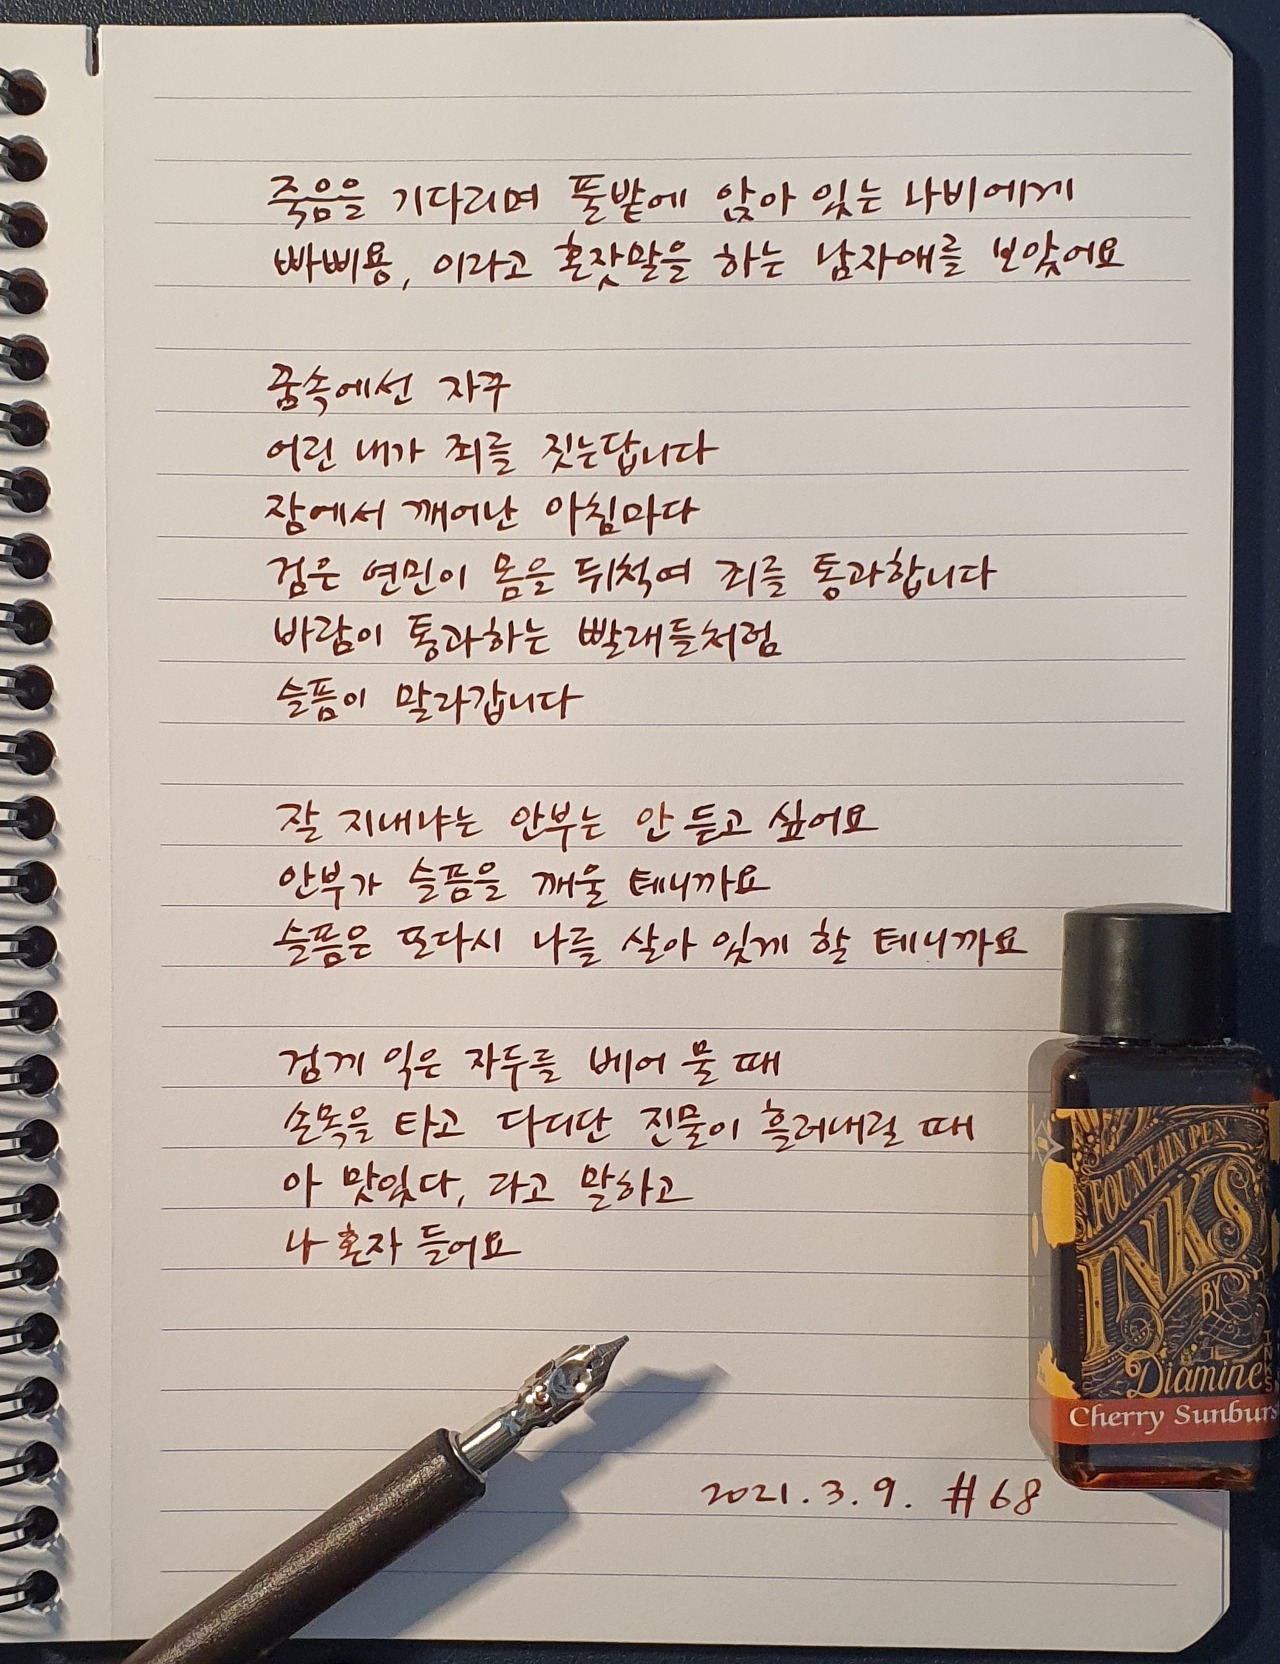 죽음을 기다리며 풀밭에 앉아 있는 나비에게
빠삐용, 이라고 혼잣말을 하는 남자애를 보았어요
꿈속에선 자꾸
어린 내가 죄를 짓는답니다
잠에서 깨어난 아침마다
검은 연민이 몸을 뒤척여 죄를 통과합니다
바람이 통과하는 빨래들처럼
슬픔이 말라갑니다
잘 지내냐는 안부는 안 듣고 싶어요
안부가 슬픔을 깨울 테니까요
슬픔은 또다시 나를 살아 있게 할 테니까요
검게 익은 자두를 베어 물 때
손목을 타고 다디단 진물이 흘러내릴 때
아 맛있다, 라고 말하고
나 혼자 들어요
FOUNTAIN PEN
INKS
BY
Diamine
Cherry Sunburs
2021. 3. 9. #68